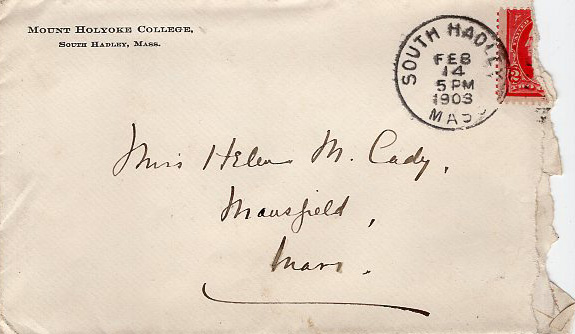 MOUNT HOLYOKE COLLEGE,
SOUTH HADLEY, MASS.
SOUTH HADLEY
FEB
14
5 PM
1903
MASS
Miss Helen M. Cady,
Mansfield,
Mass.